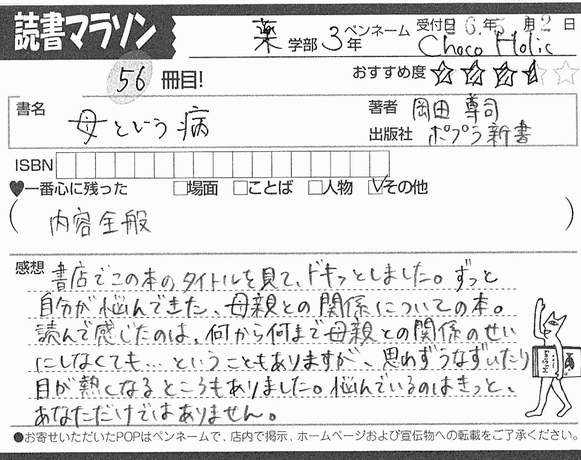 読書マラソン
薬学部 3年 ペンネーム Choco Holic 受付日 26年5月2日
56冊目!
おすすめ度
書名 母という病
著者 岡田 尊司
出版社 ポプラ新書
ISBN
♥一番心に残った □場面 □ことば □人物 ☑その他
( 内容全般 )
感想 書店でこの本のタイトルを見て、ドキッとしました。ずっと
自分が悩んできた、母親との関係についての本。
読んで感じたのは、何から何まで母親との関係のせい
にしなくても…ということもありますが、思わずうなずいたり
目が熱くなるところもありました。悩んでいるのはきっと、
あなただけではありません。
●お寄せいただいたPOPはペンネームで、店内で掲示、ホームページおよび宣伝物への転載をご了承ください。